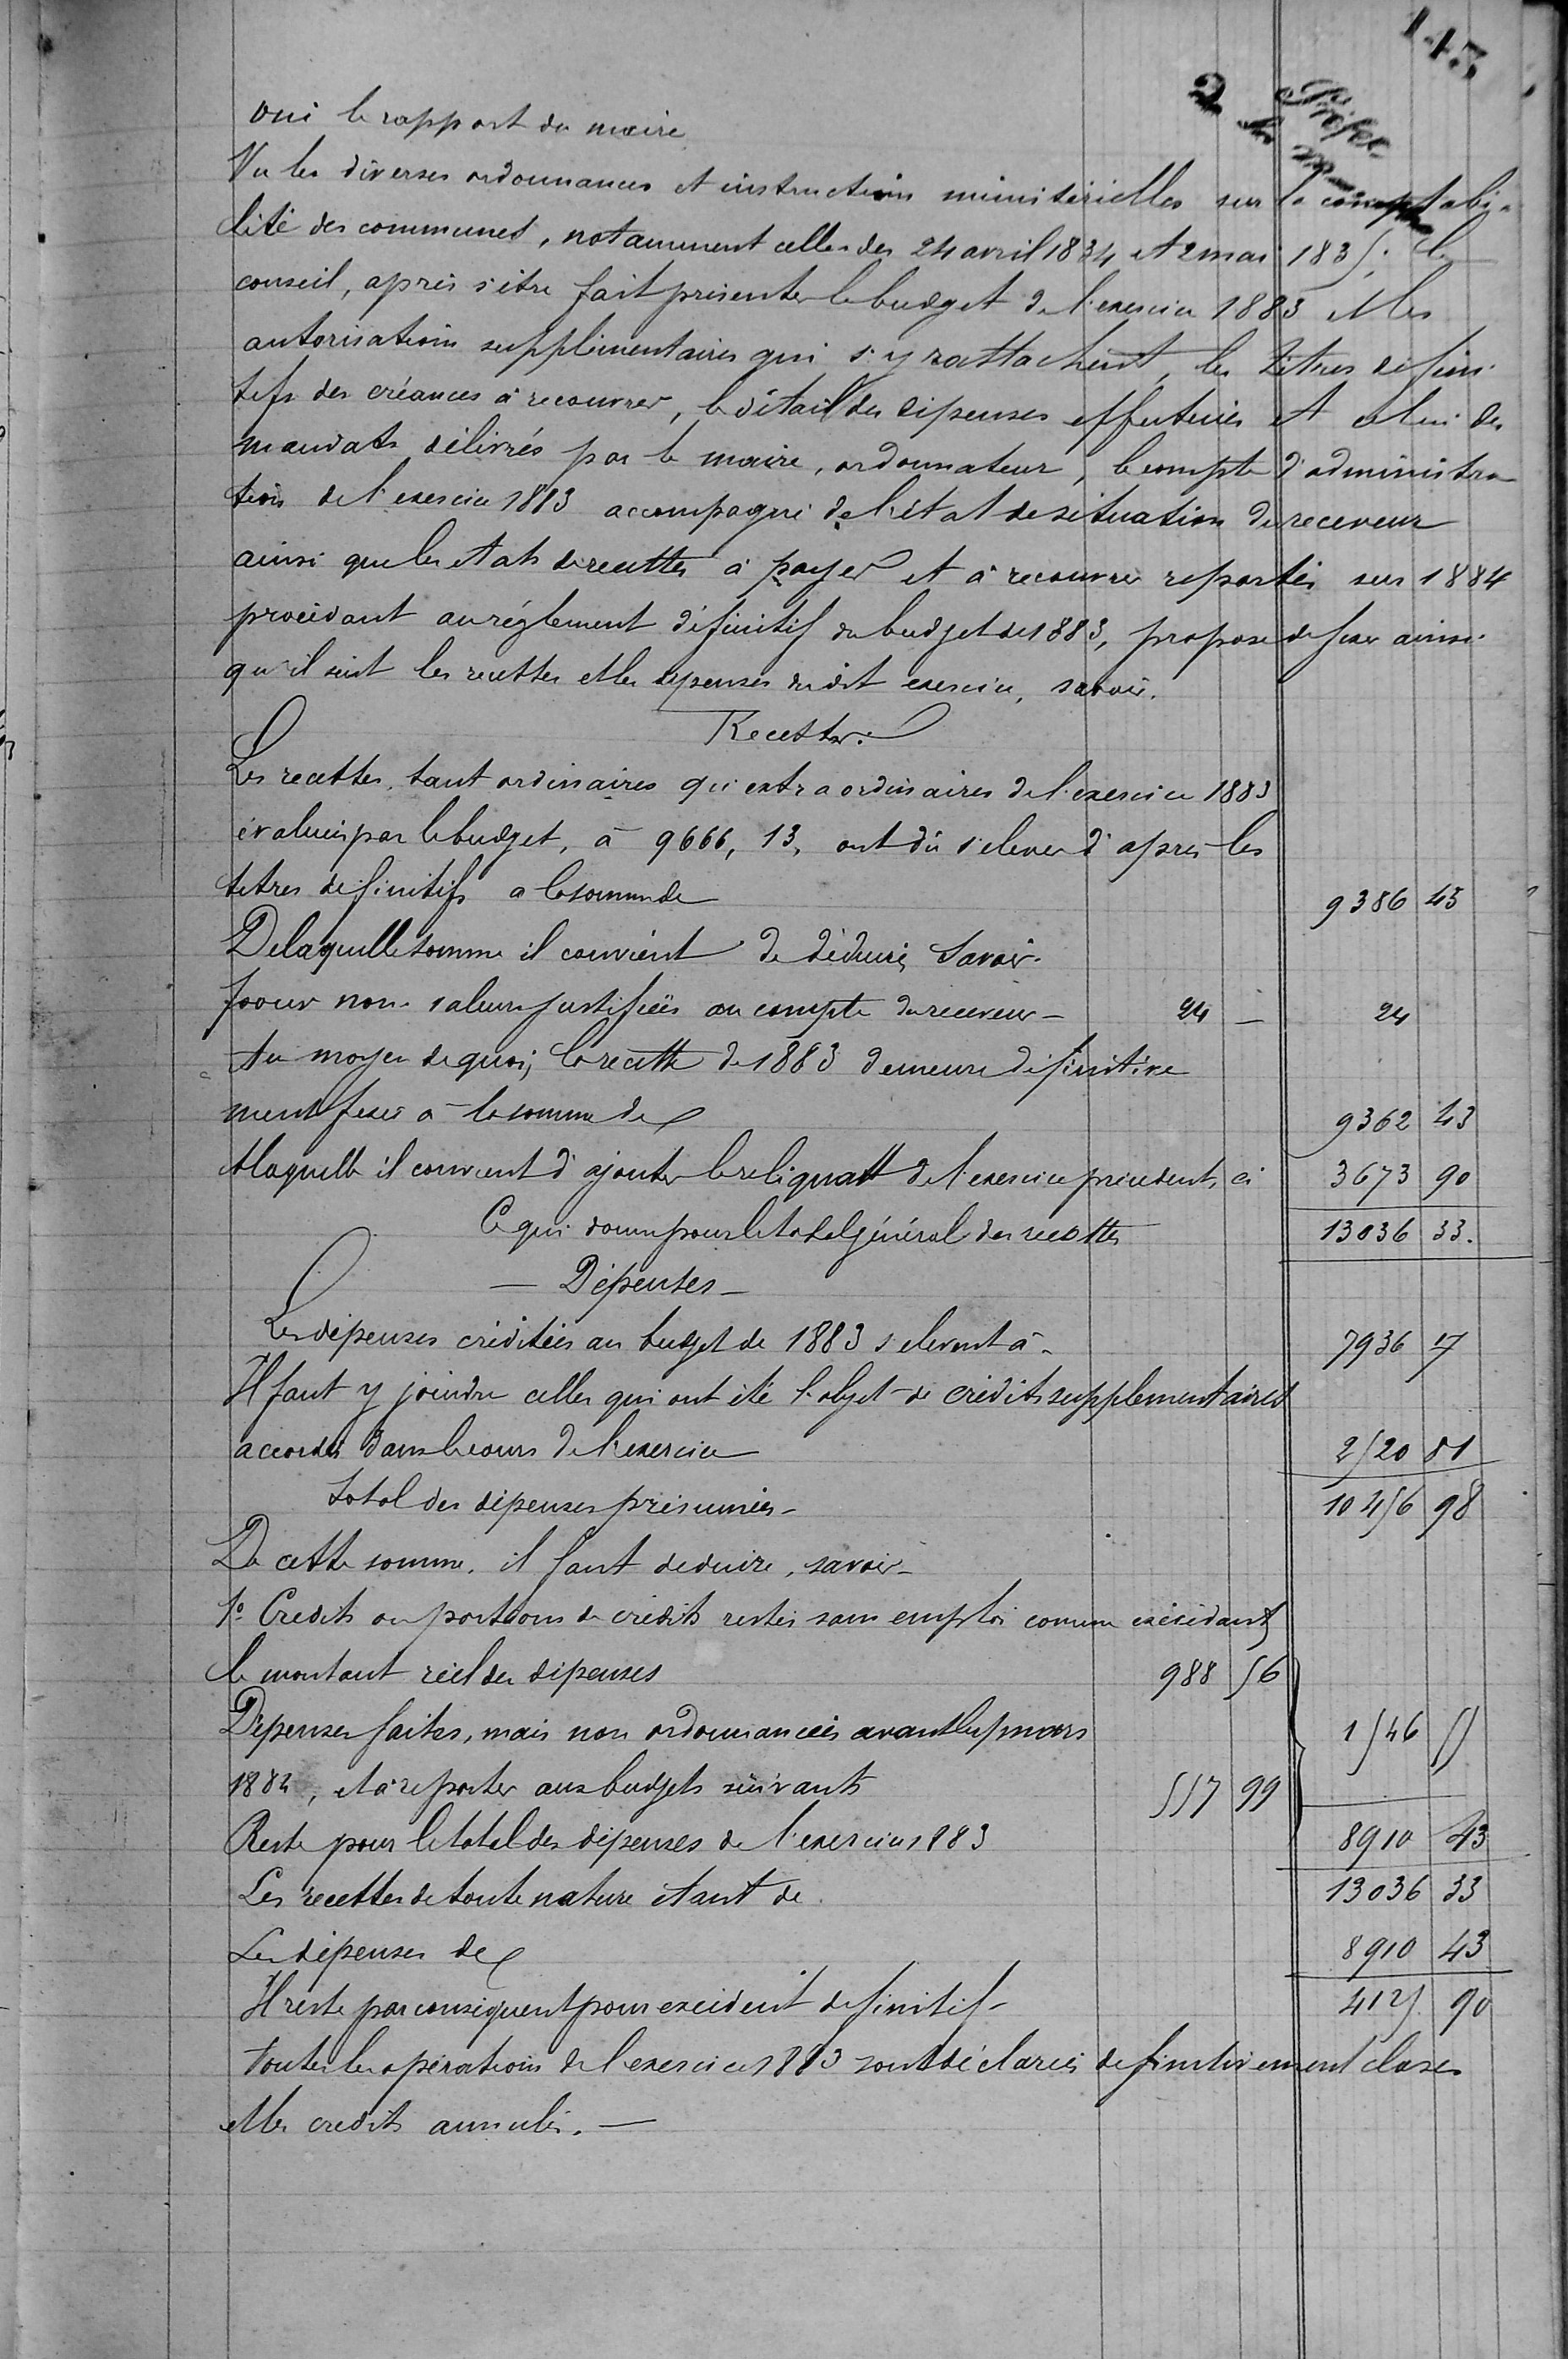 143
2 Préfec
ouï le rapport du maire
Vu les diverses ordonnances et instructions ministérielles sur la comptabi-
lité des communes, notamment celles des 24 avril 1834 et 2 mai 1835; le
conseil, après s'être fait présenter le budget de l'exercice 1883 et les
autorisations supplémentaires qui s'y rattachent, les titres défini-
tifs des créances à recouvrer, le détail des dépenses effectuées et celui des
mandats délivrés par le maire, ordonnateur, le compte d'administra
tion de l'exercice 1883 accompagné de l'état de situation du receveur
ainsi que les etats de recettes à payer et à recouvrer reportés sur 1884
procédant au réglement définitif du budget de 1883, propose de fixer ainsi
qu'il suit les recettes et les dépenses du dit exercice, savoir.
Recettes.
Les recettes, tant ordinaires qu'extraordinaires de l'exercice 1883
évaluées par le budget, à 9666, 13, ont dû s'élever d'après les
titres définitifs à la somme de 9386 43
De laquelle somme il convient de déduire, savoir.
pour non valeurs justifiées au compte du receveur - 24 - 24
Au moyen de quoi, la recette de 1883 demeure définitive
ment fixée à la somme de 9362 43
A laquelle il convient d'ajouter le reliquatt de l'exercice précédent, ci 3673 90
Ce qui donne pour le total général des recettes 13036 33.
- Dépenses -
Les dépenses créditées au budget de 1883 s'élèvent à - 7936 17
Il faut y joindre celles qui ont été l'objet de crédits supplementaires
accordés dans le cours de l'exercice 2520 81
total des dépenses présumées - 10456 98
De cette somme, il faut deduire, savoir -
1º Credits ou portions de crédits restés sans emploi comme excédant
le montant réel des dépenses 988 56
Dépenses faites, mais non ordonnancées avant le 15 mars 1546 55
1884, et à reporter aux budgets suivants 557 99
Reste pour le total des dépenses de l'exercice 1883 8910 43
Les recettes de toute nature étant de 13036 33
Les dépenses de 8910 43
Il reste par conséquent pour excédent définitif - 4125 90
toutes les opérations de l'exercice 1883 sont déclarées definitivement closes
et les credits annulés. -